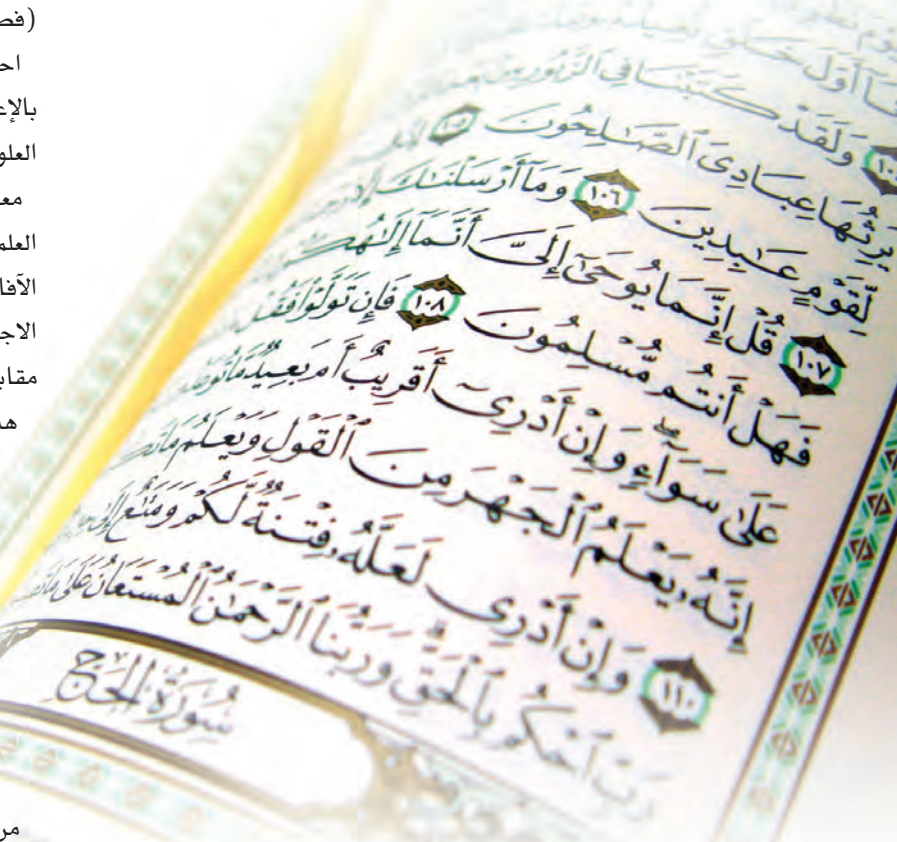 (فص
احـ
بالإع
العلو
مع
العلم
الآفا
الاجـ
مقابـ
هـ
مر
أَوَّلَ خَلْقٍ
وَلَقَدْ كَتَبْنَا فِي ٱلزَّبُورِ مِنۢ
يَرِثُهَا عِبَادِىَ ٱلصَّٰلِحُونَ ١٠٥
لِّقَوْمٍ عَٰبِدِينَ ١٠٦ وَمَآ أَرْسَلْنَٰكَ إِلَّا
١٠٧ قُلْ إِنَّمَا يُوحَىٰٓ إِلَىَّ أَنَّمَآ إِلَٰهُكُمْ
فَهَلْ أَنتُم مُّسْلِمُونَ ١٠٨ فَإِن تَوَلَّوْا۟ فَقُلْ
عَلَىٰ سَوَآءٍ وَإِنْ أَدْرِىٓ أَقَرِيبٌ أَم بَعِيدٌ مَّا تُوعَدُ
إِنَّهُۥ يَعْلَمُ ٱلْجَهْرَ مِنَ ٱلْقَوْلِ وَيَعْلَمُ مَا تَكْ
وَإِنْ أَدْرِى لَعَلَّهُۥ فِتْنَةٌ لَّكُمْ وَمَتَٰعٌ إِلَىٰ
١١٠ رَبِّ ٱحْكُم بِٱلْحَقِّ وَرَبُّنَا ٱلرَّحْمَٰنُ ٱلْمُسْتَعَانُ عَلَىٰ مَا
سُورَةُ الحَجّ